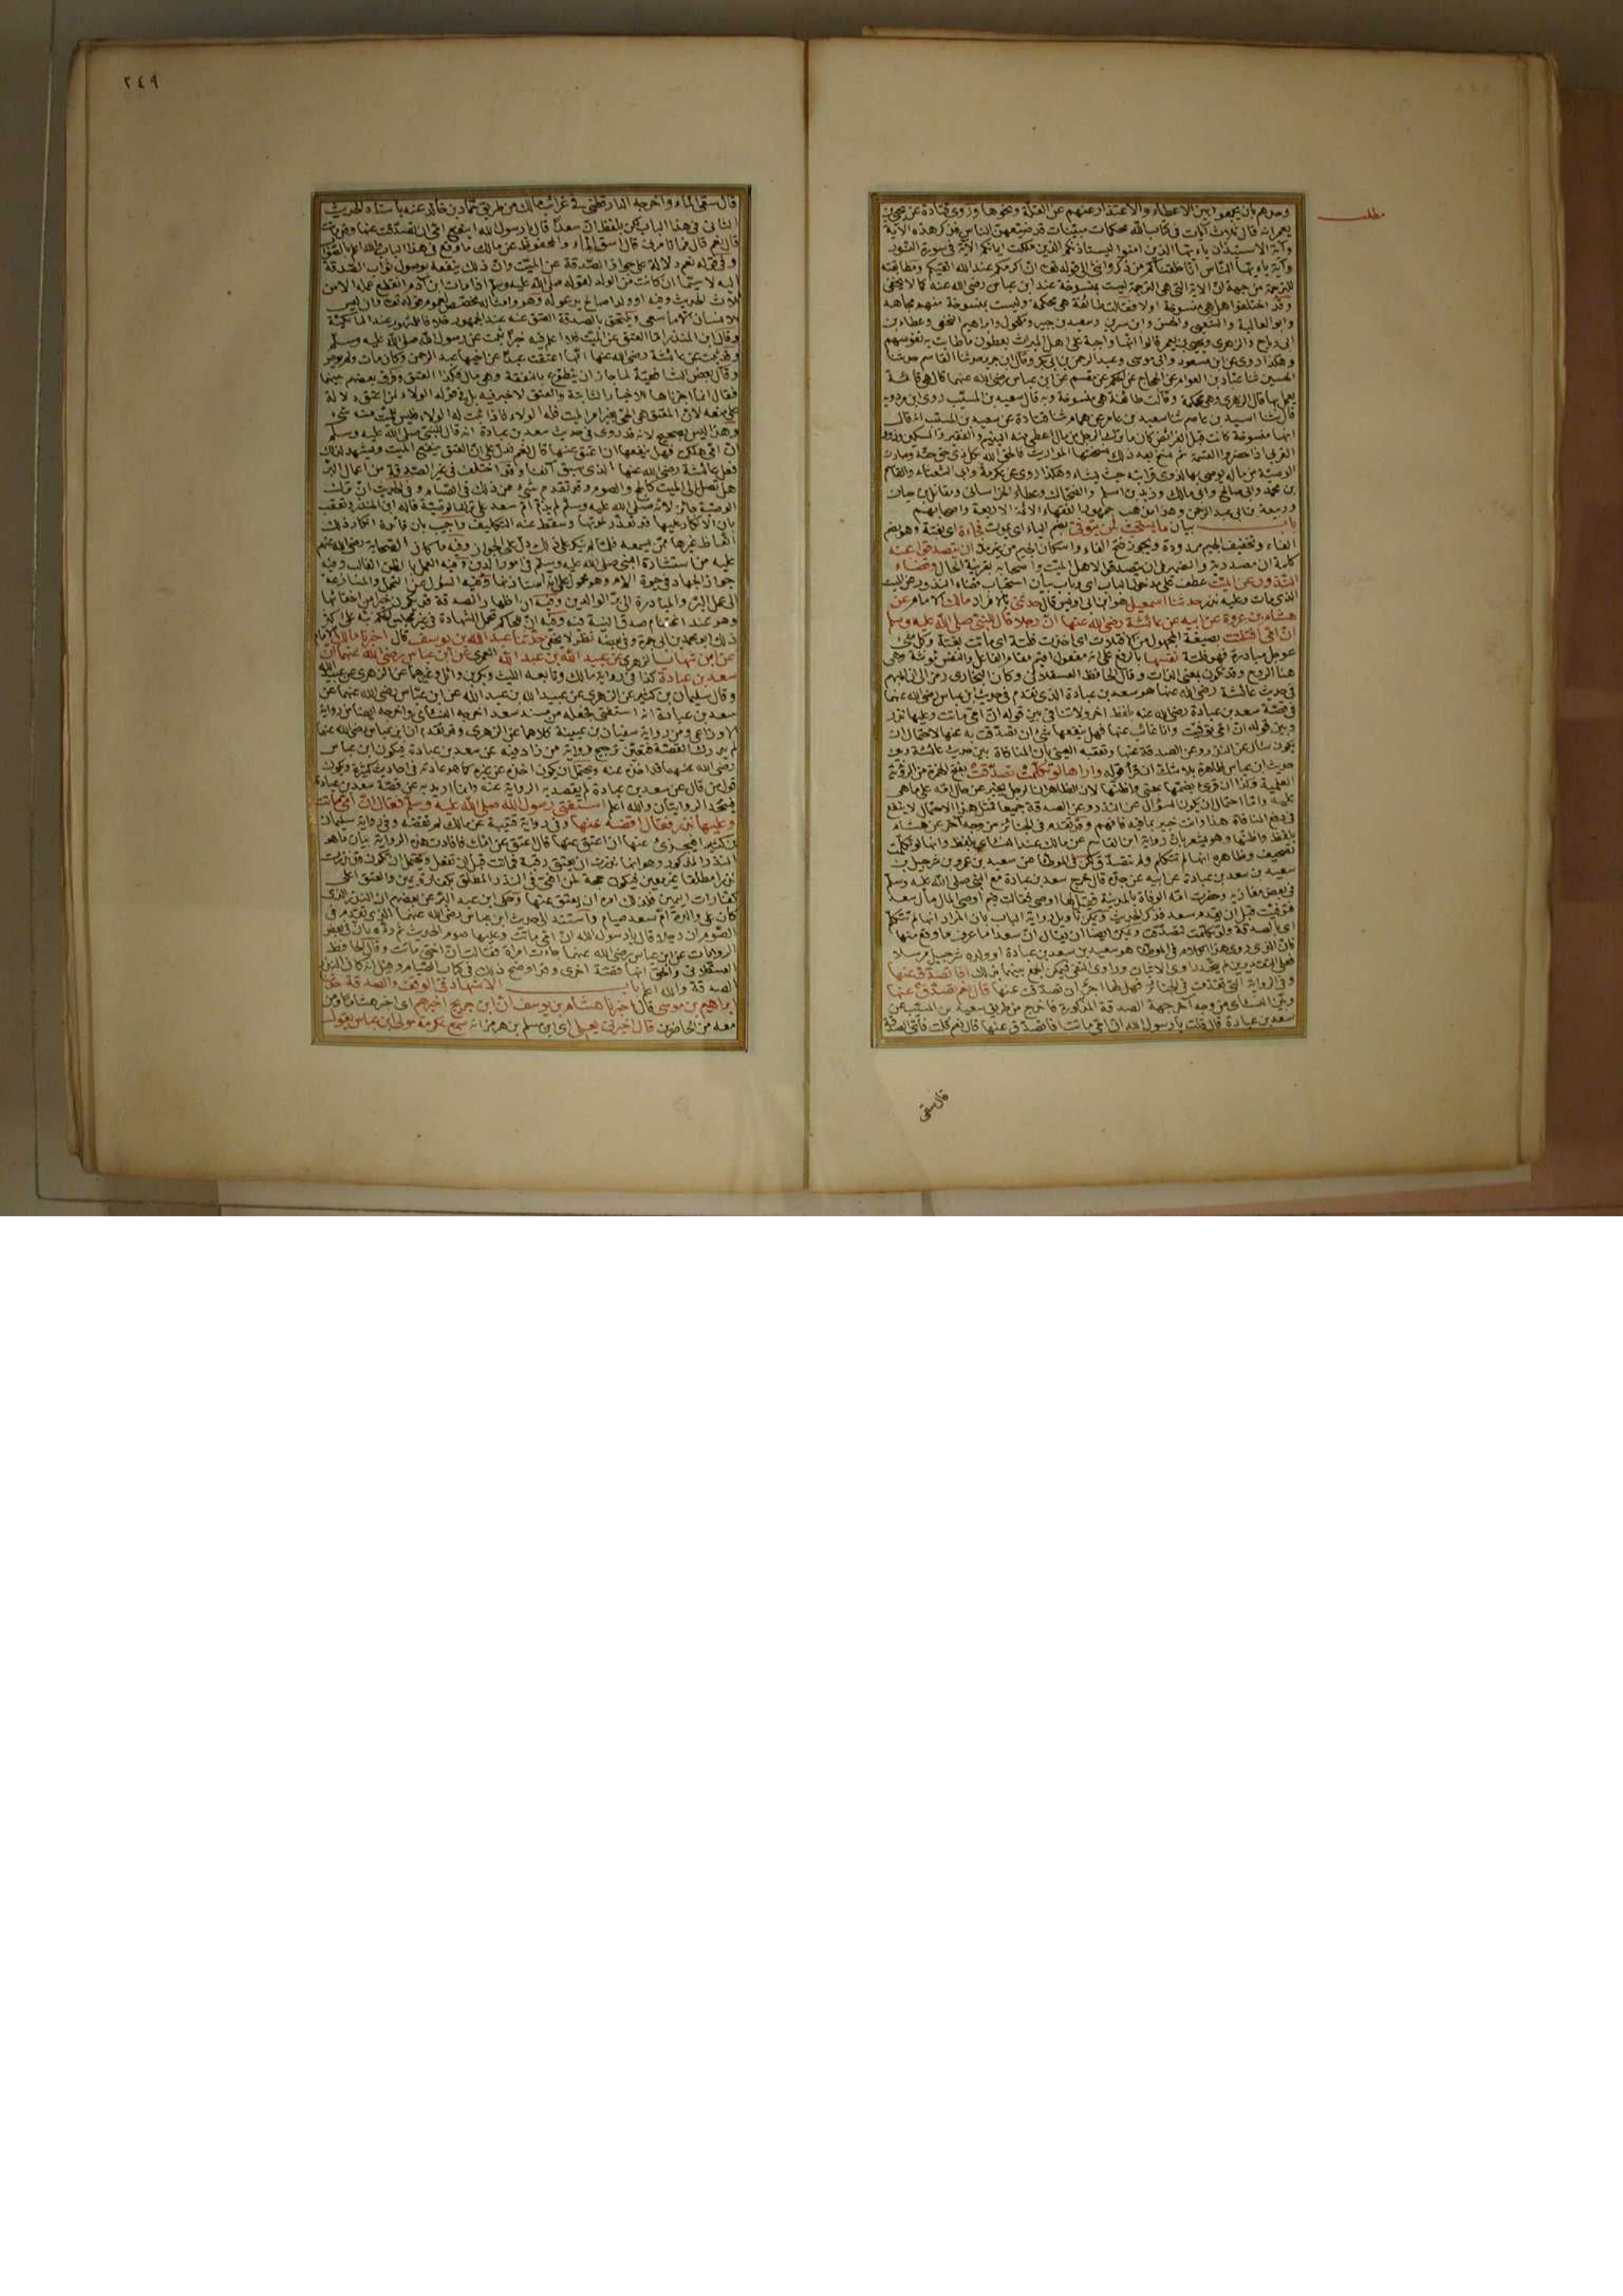 مطلب
وحدهم بان يجمعوا بين الاعطاء والاعتذار عنهم عن القلة ونحوها وروى قتادة عن يحيى بن
يعمر انه قال ثلاث آيات في كتاب الله محكمات مبينات قد ضيعهن الناس فذكر هذه الآية
وآية الاستيذان يا ايها الذين امنوا ليستاذنكم الذين ملكت ايمانكم الآية في سورة النور
وآية يا ايها الناس انا خلقناكم من ذكر وانثى الى قوله تعالى ان اكرمكم عند الله اتقيكم ومطابقته
للترجمة من جهة ان الآية التي هي الترجمة ليست بمنسوخة عند ابن عباس رضي الله عنه كما لا يخفى
وقد اختلفوا هل هي منسوخة اولا فقالت طائفة هي محكمة وليست بمنسوخة منهم مجاهد
وابو العالية والشعبي والحسن وابن سيرين وسعيد بن جبير ومكحول وابراهيم النخعي وعطاء بن
ابي رباح والزهري ويحيى بن يعمر قالوا انها واجبة على اهل الميراث يعطون ما طابت به نفوسهم
وهكذا روى عن ابن مسعود وابي موسى وعبد الرحمن بن ابي بكر وقال ابن جرير حدثنا القاسم حدثنا
الحسين ثنا عباد بن العوام عن الحجاج عن الحكم عن مقسم عن ابن عباس رضي الله عنهما قال هي قائمة
يعمل بها قال الزهري وهي محكمة وقالت طائفة هي منسوخة وبه قال سعيد بن المسيب روى ابن مردويه
قال ثنا اسيد بن عاصم ثنا سعيد بن عامر عن همام ثنا قتادة عن سعيد بن المسيب انه قال
انها منسوخة كانت قبل الفرائض كان ما ترك الرجل من مال اعطى منه اليتيم والفقير والمسكين وذوو
القربى اذا حضروا القسمة ثم نسخ بعد ذلك نسختها المواريث فالحق الله بكل ذي حق حقه وصارت
الوصية من ماله يوصي بها لذوي قرابته حيث يشاء وهكذا روى عن عكرمة وابي الشعثاء والقاسم
بن محمد وابي صالح وابي مالك وزيد بن اسلم والضحاك وعطاء الخراساني ومقاتل بن حيان
وربيعة بن ابي عبد الرحمن وهذا مذهب جمهور الفقهاء الائمة الاربعة واصحابهم
باب بيان ما يستحب لمن يتوفى بضم الياء اي يموت فجاءة اي بغتة وهو بضم
الفاء وتخفيف الجيم ممدودة ويجوز فتح الفاء واسكان الجيم من غير مد ان يتصدقوا عنه
كلمة ان مصدرية والضمير في ان يتصدقوا لاهل الميت واصحابه بقرينة الحال وقضاء
النذور عن الميت عطف على مدخول الباب اي وباب بيان استحباب قضاء النذور عن الميت
الذي مات وعليه نذر حدثنا اسمعيل هو ابن ابي اويس قال حدثني بالافراد مالك الامام عن
هشام بن عروة عن ابيه عن عائشة رضي الله عنها ان رجلا قال للنبي صلى الله عليه وسلم
ان امي افتلتت بصيغة المجهول من الافتلات اي اخذت فلتة اي ماتت بغتة وكل شيء
عوجل مبادرة فهو فلتة نفسها بالرفع على انه مفعول اقيم مقام الفاعل والنفس مؤنثة وهي
هنا الروح وقد تكون بمعنى الذات وقال الحافظ العسقلاني وكان البخاري رمز الى ان المبهم
في حديث عائشة رضي الله عنها هو سعد بن عبادة الذي تقدم في حديث ابن عباس رضي الله عنهما
في قصة سعد بن عبادة رضي الله عنه بلفظ اخر ولا تنافي بين قوله ان امي ماتت وعليها نذر
وبين قوله ان امي توفيت وانا غائب عنها فهل ينفعها شيء ان تصدقت به عنها لاحتمال ان
يكون سأل عن النذر وعن الصدقة عنها وتعقبه العيني بان المنافاة بين حديث عائشة وبين
حديث ابن عباس ظاهرة بلا شك ان قرأ قوله واراها لو تكلمت تصدقت بفتح الهمزة من الرؤية
العلمية وكذا ان قرئ بضمها بمعنى واظنها لان الظاهر ان الرجل يخبر عن حال امه على ما هي
عليه واما احتمال ان يكون السؤال عن النذر وعن الصدقة جميعا فمثل هذا الاحتمال لا ينفع
في دفع المنافاة هذا وانت خبير بما فيه فافهم وقد تقدم في الجنائز من وجه آخر عن هشام
بلفظ واظنها وهو يشعر بان رواية ابن القاسم عن مالك عند النسائي بلفظ وانها لو تكلمت
تصحيف وظاهره انها لم تتكلم ولم تتصدق لكن في الموطا عن سعيد بن عمرو بن شرحبيل بن
سعيد بن سعد بن عبادة عن ابيه عن جده قال خرج سعد بن عبادة مع النبي صلى الله عليه وسلم
في بعض مغازيه وحضرت امه الوفاة بالمدينة فقيل لها اوصي فقالت فيم اوصي المال مال سعد
فتوفيت قبل ان يقدم سعد فذكر الحديث ويمكن تاويل رواية الباب بان المراد انها لم تتكلم
اي بالصدقة ولو تكلمت لتصدقت ويمكن ايضا ان يقال ان سعدا ما عرف ما وقع منها
فان الذي روى هذا الكلام في الموطا هو سعيد بن سعد بن عبادة او ولده شرحبيل مرسلا
فعلى التقديرين لم يتحد راوي الاثبات وراوي النفي فيمكن الجمع بينهما بذلك افاتصدق عنها
وفي الرواية التي تقدمت في الجنائز فهل لها اجر ان تصدقت عنها قال نعم تصدق عنها
وبين النسائي من وجه آخر جهة الصدقة المذكورة فاخرج من طريق سعيد بن المسيب عن
سعد بن عبادة قال قلت يا رسول الله ان امي ماتت افاتصدق عنها قال نعم قلت فأي الصدقة
قال سقي
٢٤٩
قال سقي الماء واخرجه الدارقطني في غرائب مالك من طريق حماد بن خالد عنه باسناد الحديث
الثاني في هذا الباب لكن بلفظ ان سعدا قال يا رسول الله اينفع امي ان اتصدق عنها وقد ماتت
قال نعم قال فما تامرني قال اسق الماء والمحفوظ عن مالك ما وقع في هذا الباب والله اعلم بالصواب
وفي قوله نعم دلالة على جواز الصدقة عن الميت وان ذلك ينفعه بوصول ثواب الصدقة
اليه لا سيما ان كانت من الولد لقوله صلى الله عليه وسلم اذا مات ابن آدم انقطع عمله الا من
ثلاث الحديث وفيه او ولد صالح يدعو له وهو وامثاله مخصص لعموم قوله تعالى وان ليس
للانسان الا ما سعى ويلتحق بالصدقة العتق عنه عند الجمهور خلافا للمشهور عند المالكية
وقال ابن المنذر اما العتق عن الميت فلا اعلم فيه خبرا ثبت عن رسول الله صلى الله عليه وسلم
وقد ثبت عن عائشة رضي الله عنها انها اعتقت عبدا عن اخيها عبد الرحمن وكان مات ولم يوص
وقال بعض الشافعية لما جاز ان يتطوع بالنفقة وهي مال فكذا العتق وفرق بعضهم بينهما
فقال انما اجزناها للاخبار الثابتة والعتق لا خبر فيه بل في قوله الولاء لمن اعتق دلالة
على منعه لان المعتق هو الحي بغير امر الميت فله الولاء فاذا ثبت له الولاء فليس للميت منه شيء
وهذا ليس بصحيح لانه قد روى في حديث سعد بن عبادة انه قال للنبي صلى الله عليه وسلم
ان امي هلكت فهل ينفعها ان اعتق عنها قال نعم فدل على ان العتق ينفع الميت ويشهد لذلك
فعل عائشة رضي الله عنها الذي سبق آنفا وقد اختلف في غير الصدقة من اعمال البر
هل تصل الى الميت كالحج والصوم وقد تقدم شيء من ذلك في الصيام وفي الحديث ان ترك
الوصية جائز لانه صلى الله عليه وسلم لم يذم ام سعد على ترك الوصية قاله ابن المنذر وتعقب
بان الانكار عليها قد تعذر لموتها وسقط عنه التكليف واجيب بان فائدة انكار ذلك
اتعاظ غيرها ممن يسمعه فلما لم ينكر على ذلك دل على الجواز وفيه ما كان الصحابة رضي الله عنهم
عليه من استشارة النبي صلى الله عليه وسلم في امور الدين وفيه العمل بالظن الغالب وفيه
جواز الجهاد في حيوة الام وهو محمول على انه استأذنها وفيه السؤال عن التحمل والمسارعة
الى عمل البر والمبادرة الى بر الوالدين وفيه ان اظهار الصدقة قد يكون خيرا من اخفائها
وهو عند اغتنام صدق النية فيه وفيه ان للحاكم تحمل الشهادة في غير مجلس الحكم نبه على اكثر
ذلك ابو محمد بن ابي جمرة وفي بعضه نظر لا يخفى حدثنا عبد الله بن يوسف قال اخبرنا مالك الامام
عن ابن شهاب الزهري عن عبيد الله بن عبد الله العمري عن ابن عباس رضي الله عنهما ان
سعد بن عبادة كذا في رواية مالك وتابعه الليث وبكر بن وائل وغيرهما عن الزهري عن عبيد الله
وقال سليمان بن كثير عن الزهري عن عبيد الله بن عبد الله عن ابن عباس رضي الله عنهما عن
سعد بن عبادة انه استفتى فجعله من مسند سعد اخرجه النسائي واخرجه ايضا من رواية
الاوزاعي ومن رواية سفيان بن عيينة كلاهما عن الزهري وقد تقدم ان ابن عباس رضي الله عنهما
لم يدرك القصة فتعين ترجيح رواية من زاد فيه عن سعد بن عبادة فيكون ابن عباس
رضي الله عنهما قد اخذه عنه ويحتمل ان يكون اخذه عن غيره كما هو عادته في احاديث كثيرة ويكون
قول من قال عن سعد بن عبادة لم يقصد به الرواية عنه وانما اريد به عن قصة سعد بن عبادة
فيتحد الروايتان والله اعلم استفتى رسول الله صلى الله عليه وسلم فقال ان امي ماتت
وعليها نذر فقال اقضه عنها وفي رواية قتيبة عن مالك لم تقضه وفي رواية سليمان
بن كثير افيجزئ عنها ان اعتق عنها قال اعتق عن امك فافادت هذه الرواية بيان ما هو
النذر المذكور وهو انها نذرت ان يعتق رقبة فماتت قبل ان تفعل ويحتمل ان تكون قد نذرت
نذرا مطلقا غير معين فيكون حجة لمن افتى في النذر المطلق بكفارة يمين والعتق اعلى
كفارات اليمين فلذلك امره ان يعتق عنها وحكى ابن عبد البر عن بعضهم ان النذر الذي
كان على والدة ام سعد صيام واستند الى حديث ابن عباس رضي الله عنهما الذي تقدم في
الصوم ان رجلا قال يا رسول الله ان امي ماتت وعليها صوم الحديث ثم رده بان في بعض
الروايات عن ابن عباس رضي الله عنهما جاءت امرأة فقالت ان اختي ماتت وقال الحافظ
العسقلاني والحق انها قصة اخرى وقد اوضح ذلك في كتاب الصيام وقيل انه كان النذر
الصدقة والله اعلم باب الاشهاد في الوقف والصدقة حدثنا
ابراهيم بن موسى قال اخبرنا هشام بن يوسف ان ابن جريج اخبرهم اي اخبر هشاما ومن
معه من الحاضرين قال اخبرني يعلى اي ابن مسلم بن هرمز انه سمع عكرمة مولى ابن عباس يقول